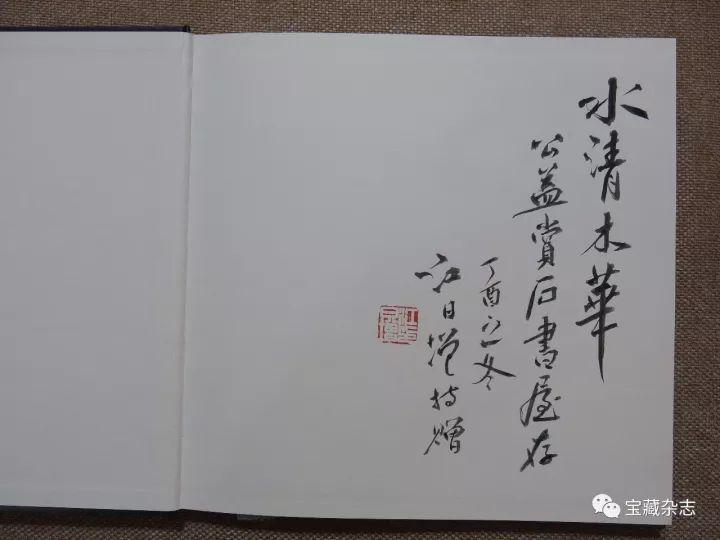 水清木華
公益賞石書屋存
丁酉之冬
江日增持贈
宝藏杂志